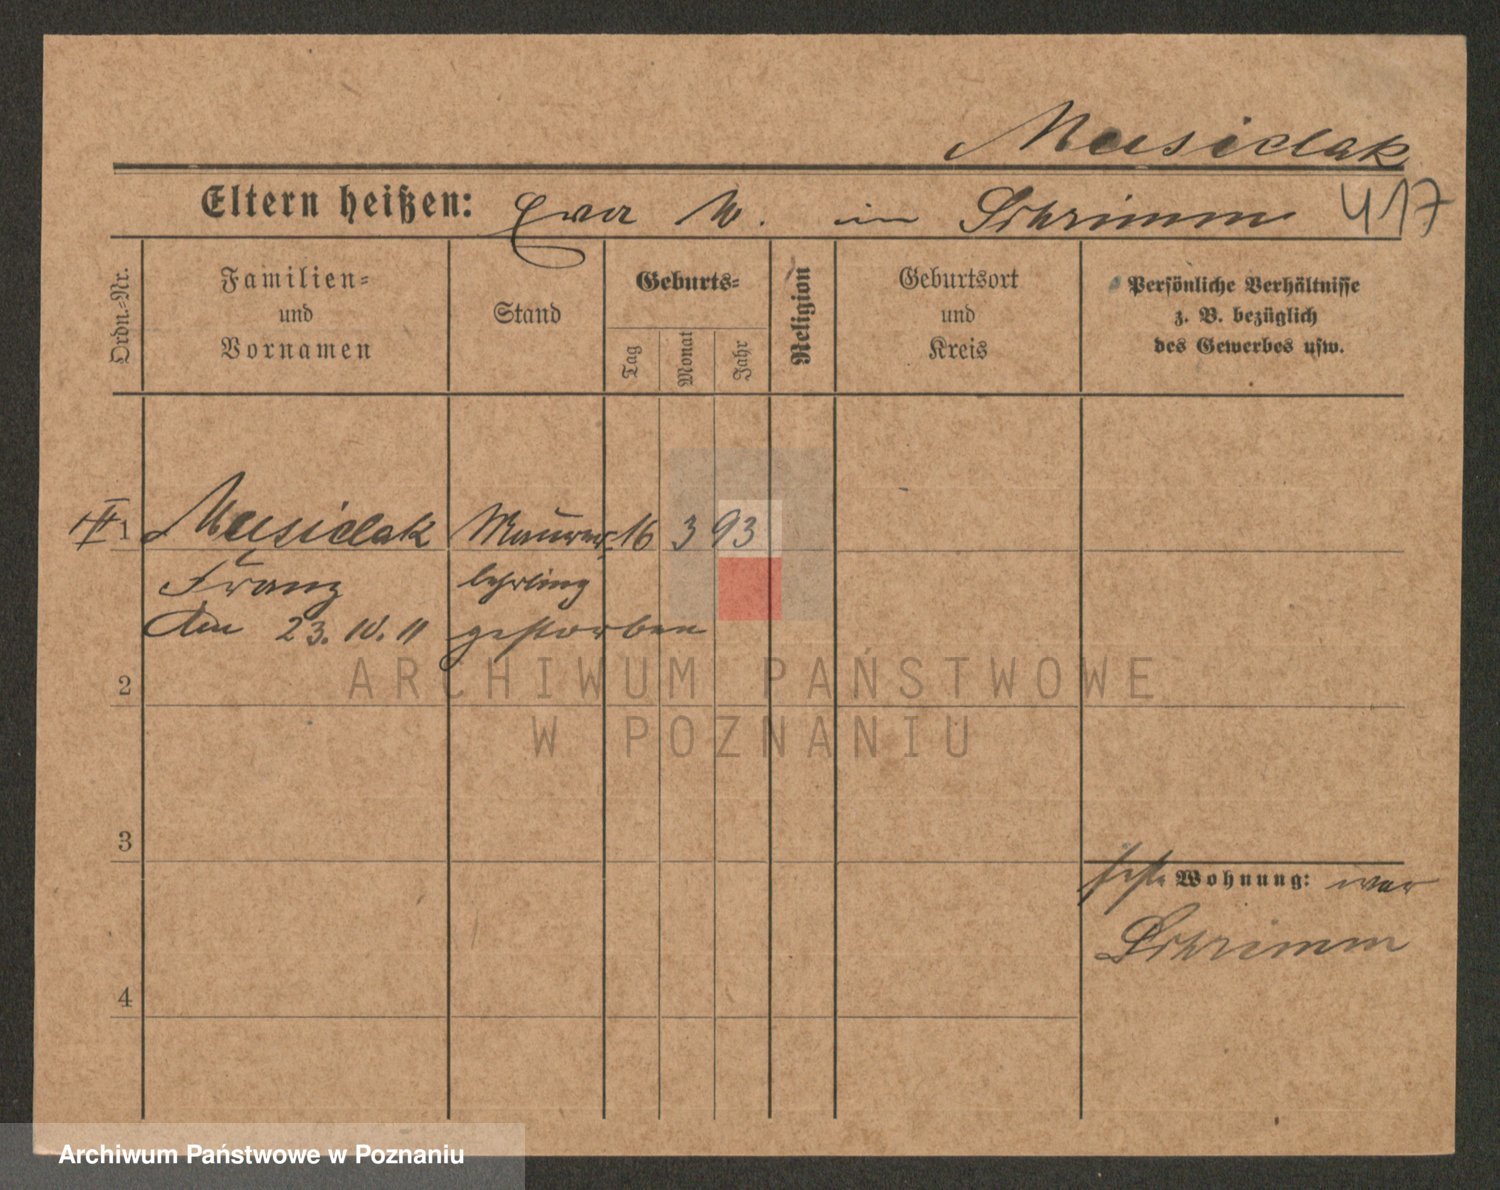 Musidlak
Eltern heißen: Eva M. in Schrimm 417
Ordn.-Nr.
Familien-
und
Vornamen
Stand
Geburts-
Tag
Monat
Jahr
Religion
Geburtsort
und
Kreis
Persönliche Verhältnisse
z. B. bezüglich
des Gewerbes usw.
1 Musidlak Maurer- 16 3 93
Franz lehrling
Am 23.10.11 gestorben
2
3
4
Wohnung: war
Schrimm
ARCHIWUM PAŃSTWOWE
W POZNANIU
Archiwum Państwowe w Poznaniu